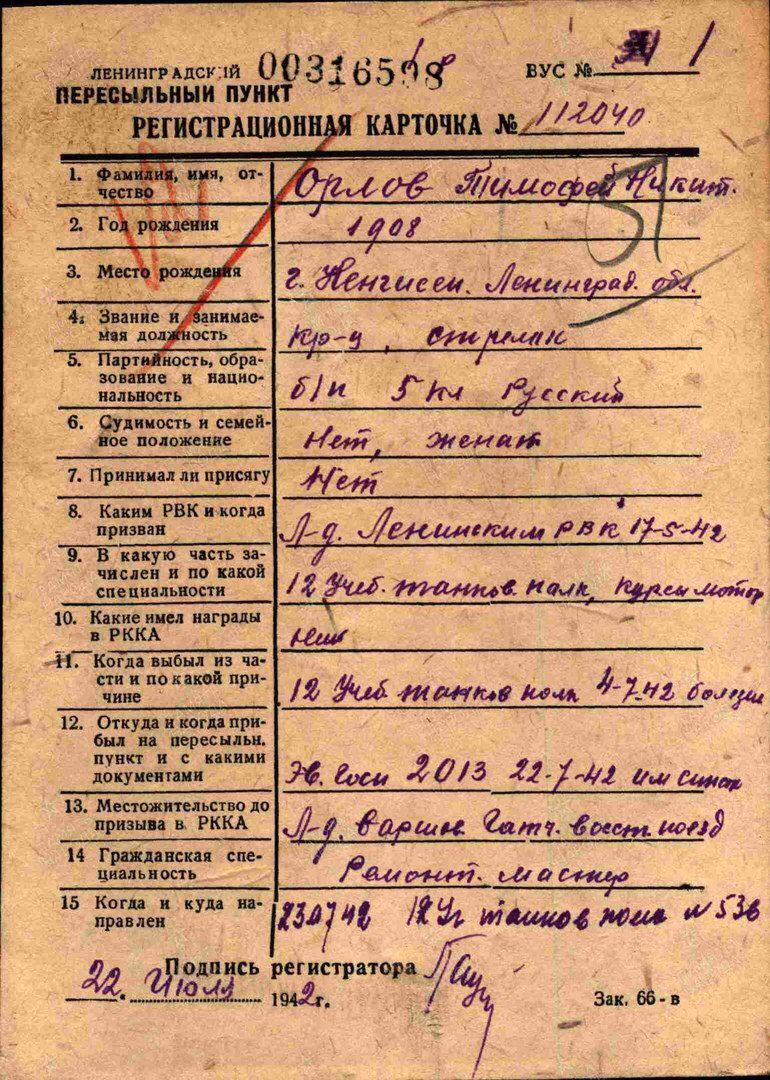 ЛЕНИНГРАДСКИЙ 00316598 ВУС № 1
ПЕРЕСЫЛЬНЫЙ ПУНКТ
РЕГИСТРАЦИОННАЯ КАРТОЧКА № 112040
1. Фамилия, имя, от-
чество
Орлов Тимофей Никит.
2. Год рождения
1908
3. Место рождения
г. Ленинград. обл.
4. Звание и занимае-
мая должность
Кр-ц, стрелок
5. Партийность, обра-
зование и нацио-
нальность
б/п 5 кл Русский
6. Судимость и семей-
ное положение
Нет, женат
7. Принимал ли присягу
Нет
8. Каким РВК и когда
призван
Л-д. Ленинским РВК 17-5-42
9. В какую часть за-
числен и по какой
специальности
12 Учеб. танков. полк, Курсы мотор
10. Какие имел награды
в РККА
11. Когда выбыл из ча-
сти и по какой при-
чине
12 Учеб танков полк 4-7-42 болезни
12. Откуда и когда при-
был на пересыльн.
пункт и с какими
документами
Эв. Госп 2013 22-7-42 им список
13. Местожительство до
призыва в РККА
Л-д. Варшав. Гатч. Восст. поезд
14 Гражданская спе-
циальность
Ремонт. мастер
15 Когда и куда на-
правлен
230742 12 Уч танков полк № 536
Подпись регистратора
22. Июля 1942г.
Зак. 66-в